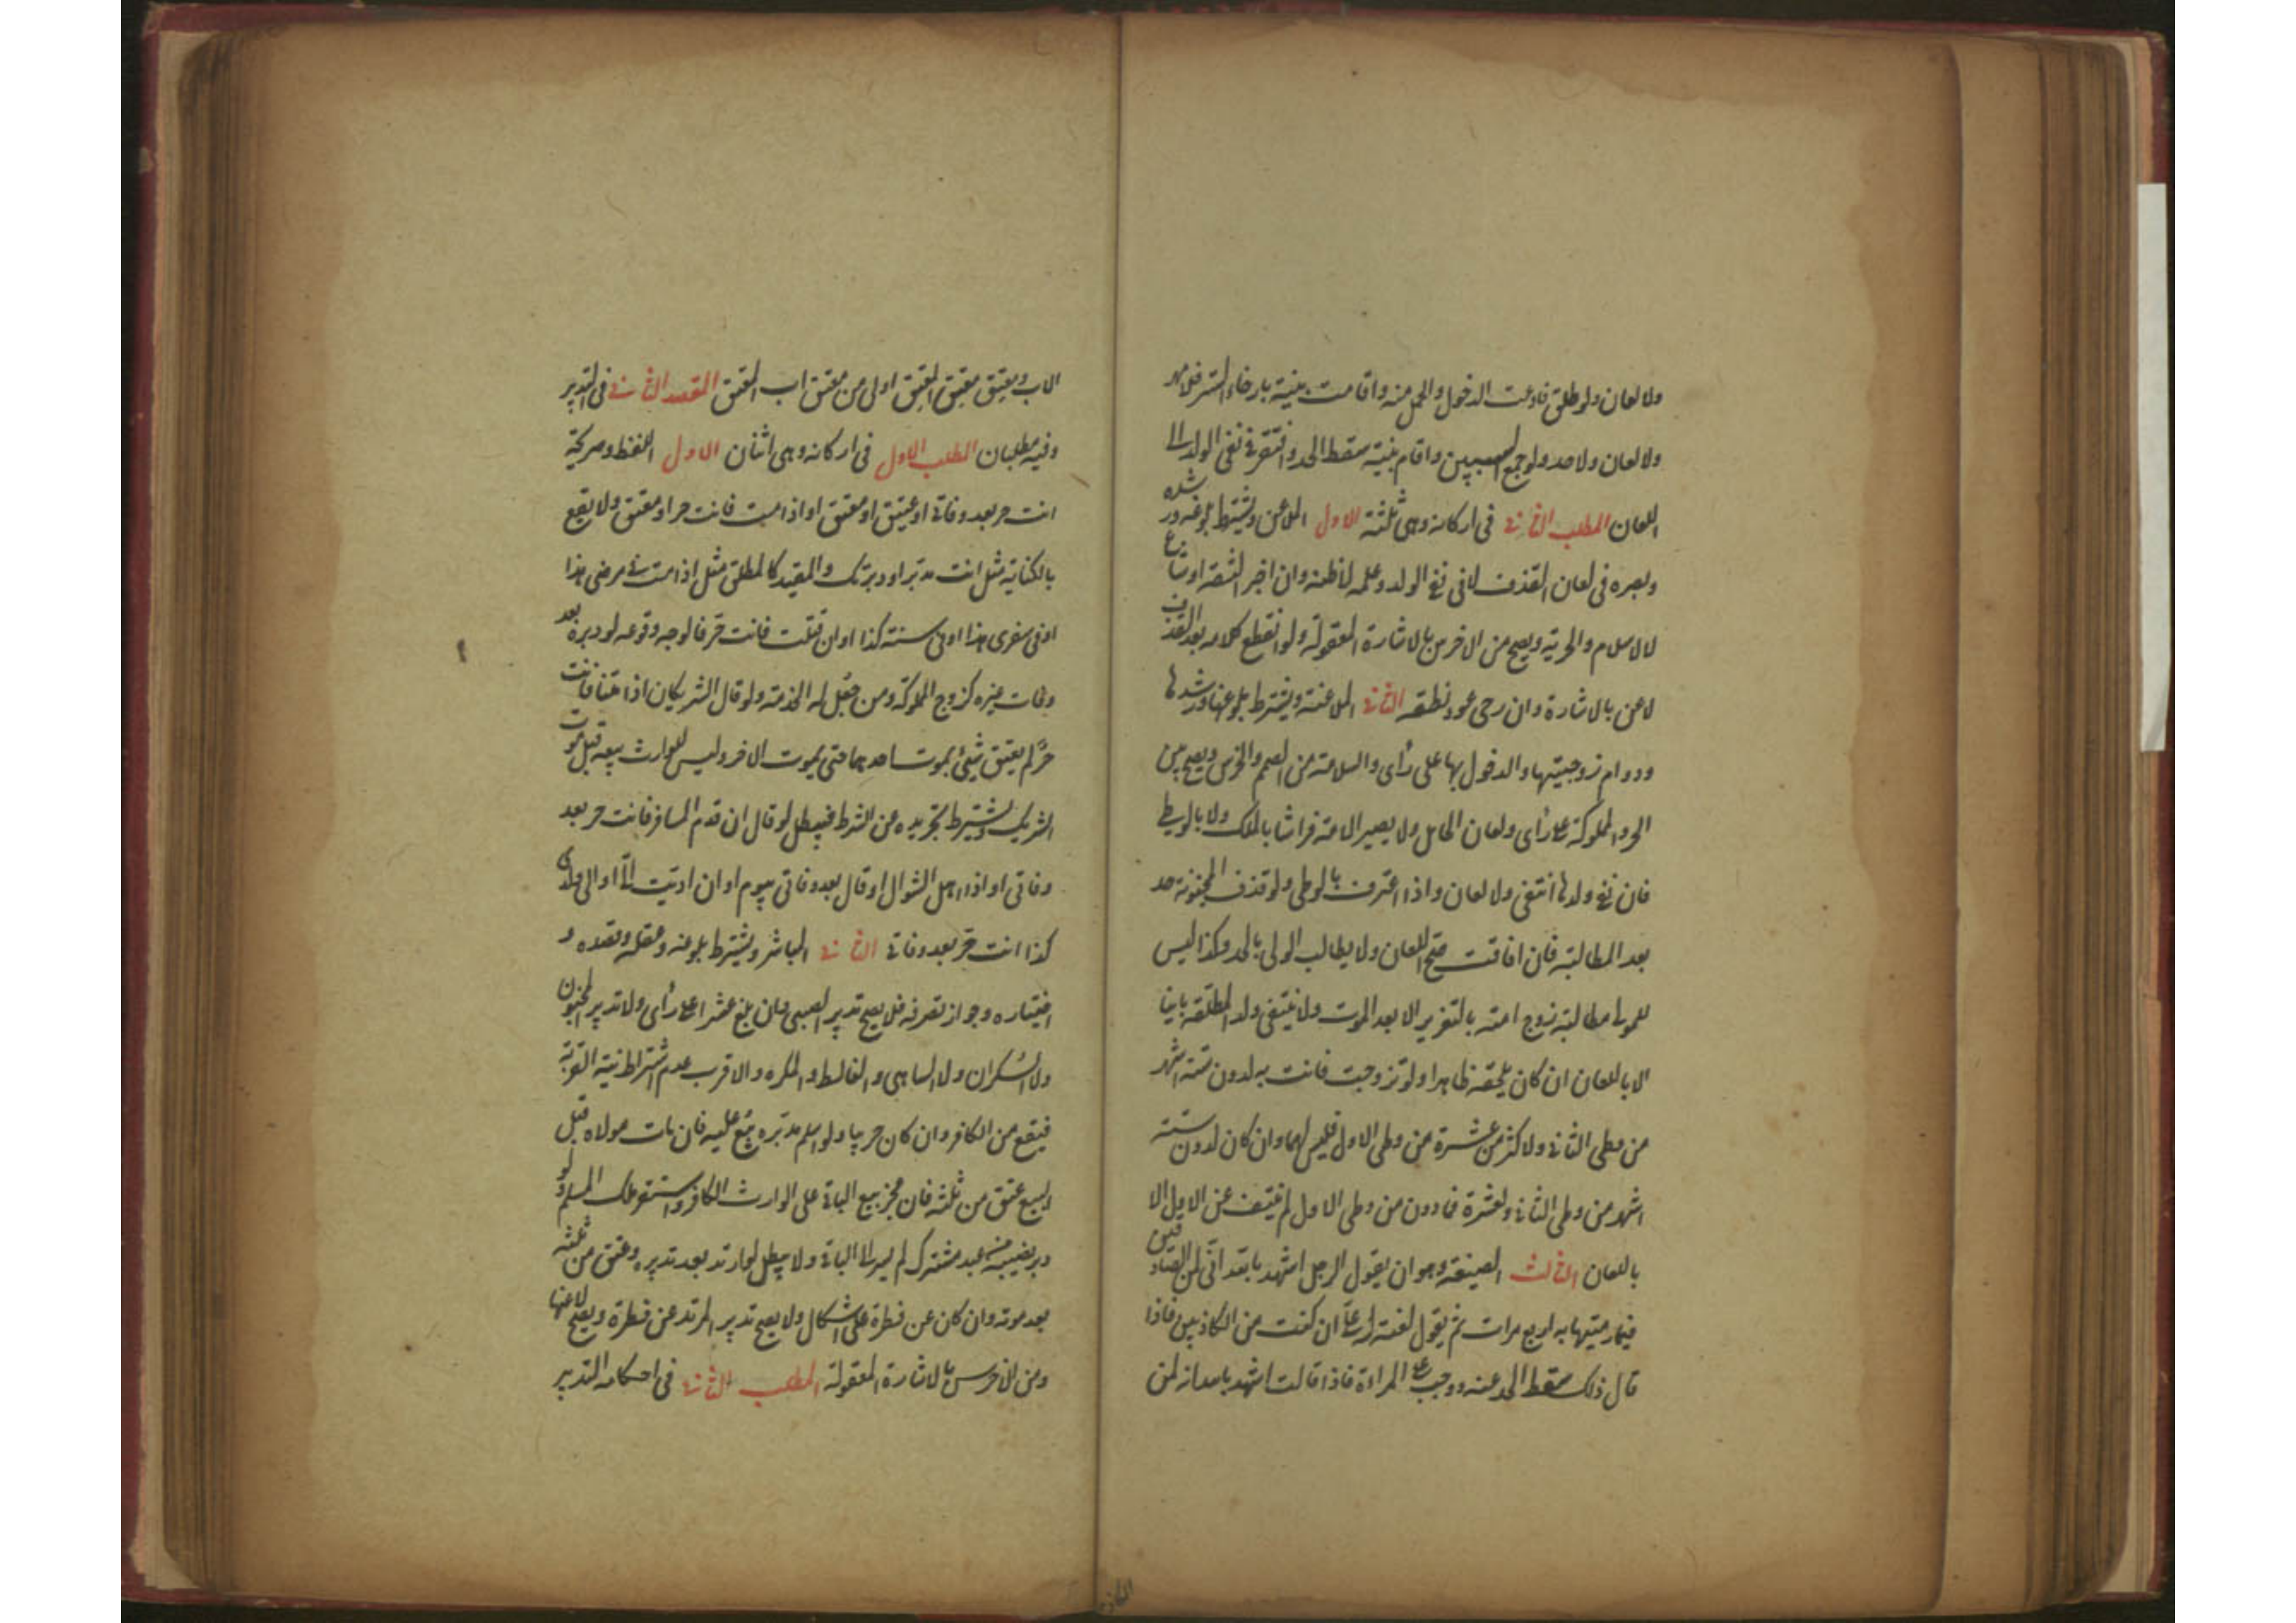 ولا لعان ولو طلق فادعت الدخول والحمل منه واقامت بينة بارخاء الستر فلا مهر
ولا لعان ولا حد ولو جمع السببين واقام بينة سقط الحد وافتقر في نفى الولد الى
اللعان المطلب الثانى فى اركانه وهى ثلثة الاول الملاعن ويشترط بلوغه ورشده
وبصره فى لعان القذف لا فى نفى الولد وعلمه لا ظنه وان اخبر الثقة او شاع
لا الاسلام والحرية ويصح من الاخرس بالاشارة المعقولة ولو انقطع كلامه بعد القذف
لاعن بالاشارة وان رجى عود نطقه الثانى الملاعنة ويشترط بلوغها ورشدها
ودوام زوجيتها والدخول بها على رأى والسلامة من الصمم والخرس ويصح بين
الحر والمملوكة على رأى ولعان الحامل ولا يصير الامة فراشا بالملك ولا بالوطى
فان نفى ولدها انتفى ولا لعان واذا اعترف بالوطى ولو قذف المجنونة حد
بعد المطالبة فان افاقت صح اللعان ولا يطالب الولى بالحد وكذا ليس
للمولى مطالبة زوج امته بالتعزير الا بعد الموت ولا ينتفى ولد المطلقة باينا
الا باللعان ان كان يلحقه ظاهرا ولو تزوجت فاتت به لدون ستة اشهر
من وطى الثانى ولاكثر من عشرة من وطى الاول فليس لهما وان كان لدون ستة
اشهر من وطى الثانى ولعشرة فما دون من وطى الاول لم ينتف عن الاول الا
باللعان الثالث الصيغة وهو ان يقول الرجل اشهد بالله انى لمن الصادقين
فيما رميتها به اربع مرات ثم يقول لعنة الله علىّ ان كنت من الكاذبين فاذا
قال ذلك سقط الحد عنه ووجب على المراءة فاذا قالت اشهد بالله انه لمن
الاب ومعتق معتق المعتق اولى من معتق اب المعتق المقصد الثانى فى التدبير
وفيه مطلبان المطلب الاول فى اركانه وهى اثنان الاول اللفظ وصريحة
انت حر بعد وفاتى او عتيق او معتق او اذا مت فانت حر او معتق ولا يقع
بالكناية مثل انت مدبر او دبرتك والمقيد كالمطلق مثل اذا مت فى مرضى هذا
او فى سفرى هذا او فى سنة كذا او ان قتلت فانت حر فالوجه وقوعه لو دبره بعد
وفات غيره كزوج المملوكة ومن جعل له الخدمة ولو قال الشريكان اذا متنا فانت
حر لم يعتق شئ بموت احدهما حتى يموت الاخر وليس للوارث بيعه قبل موت
الشريك ويشترط تجريده عن الشرط فيبطل لو قال ان قدم المسافر فانت حر بعد
وفاتى او اذا اهل الشوال او قال بعد وفاتى بيوم او ان اديت الىّ او الى ولدى
كذا انت حر بعد وفاتى الثانى المباشر ويشترط بلوغه وعقله وقصده و
اختياره وجواز تصرفه فلا يصح تدبير الصبى وان بلغ عشرا على رأى ولا تدبير المجنون
ولا السكران ولا الساهى والغالط والمكره والاقرب عدم اشتراط نية القربة
فيقع من الكافر وان كان حربيا ولو اسلم مدبره بيع عليه فان مات مولاه قبل
البيع عتق من ثلثه فان عجز بيع الباقى على الوارث الكافر واستقر ملك المسلم ولو
دبر نصيبه من عبد مشترك لم يسر الى الباقى ولا يبطل لو ارتد بعد تدبيره وعتق من ثلثه
بعد موته وان كان عن فطرة على اشكال ولا يصح تدبير المرتد عن فطرة ويصح لا عنها
ومن الاخرس بالاشارة المعقولة المطلب الثانى فى احكام التدبير